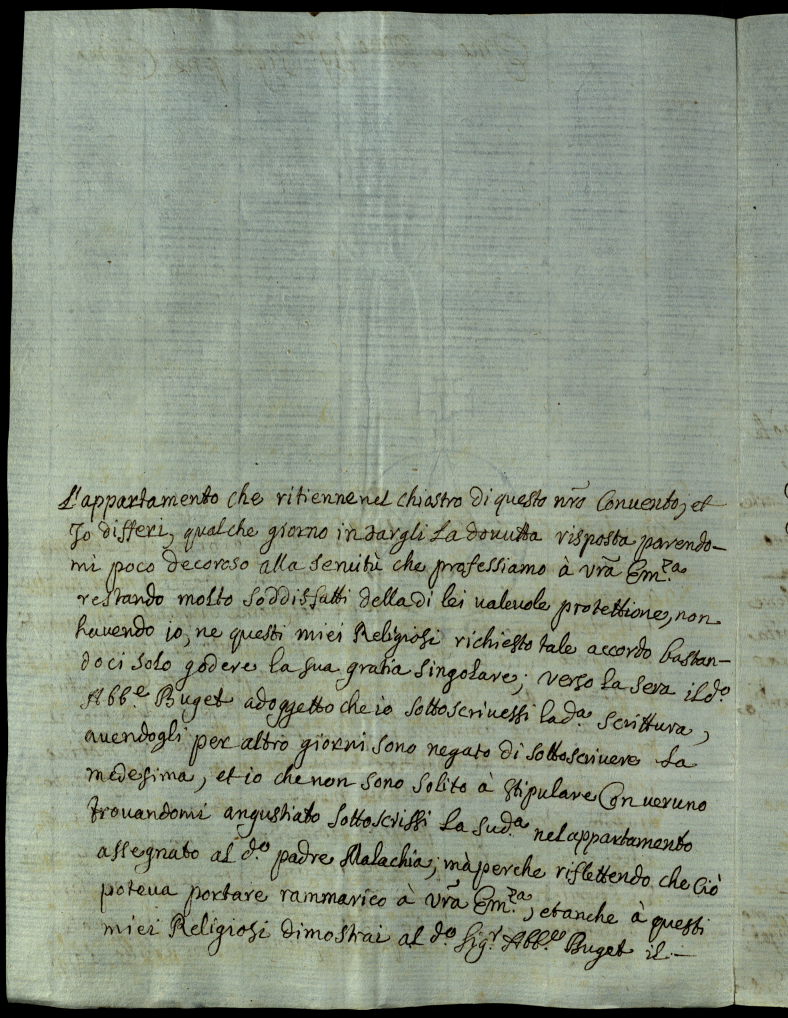 L'appartamento che ritienne nel chiastro di questo nr̃o Conuento, et
Jo differi, qualche giorno in dargli La douutta risposta parendo-
mi poco decoroso alla seruitù che professiamo à vr̃a Em.za
restando molto soddisfatti della di lei ualeuole protettione, non
hauendo io, ne questi miei Religiosi richiesto tale accordo bastan-
doci solo godere la sua gratia singolare; verso la sera il d.o
Abb.e Buget adoggetto che io sottoscriuessi la d.a scrittura,
auendogli per altro giorni sono negato di sottoscriuere La
medesima, et io che non sono solito à stipulare Con ueruno
trouandomi angustiato sottoscrissi La sud.a nel appartamento
assegnato al d.o padre Malachia, mà perche riflettendo che Ciò
poteua portare rammarico à vr̃a Em.za, et anche à questi
miei Religiosi dimostrai al d.o Sig.r Abb.e Buget il -